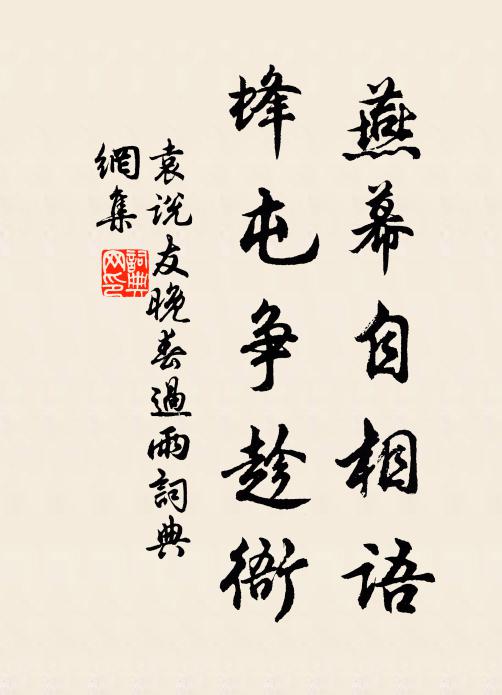 燕幕自相語
蜂屯争趁衙
袁说友晚春過雨詞典
網集
詞典
网印